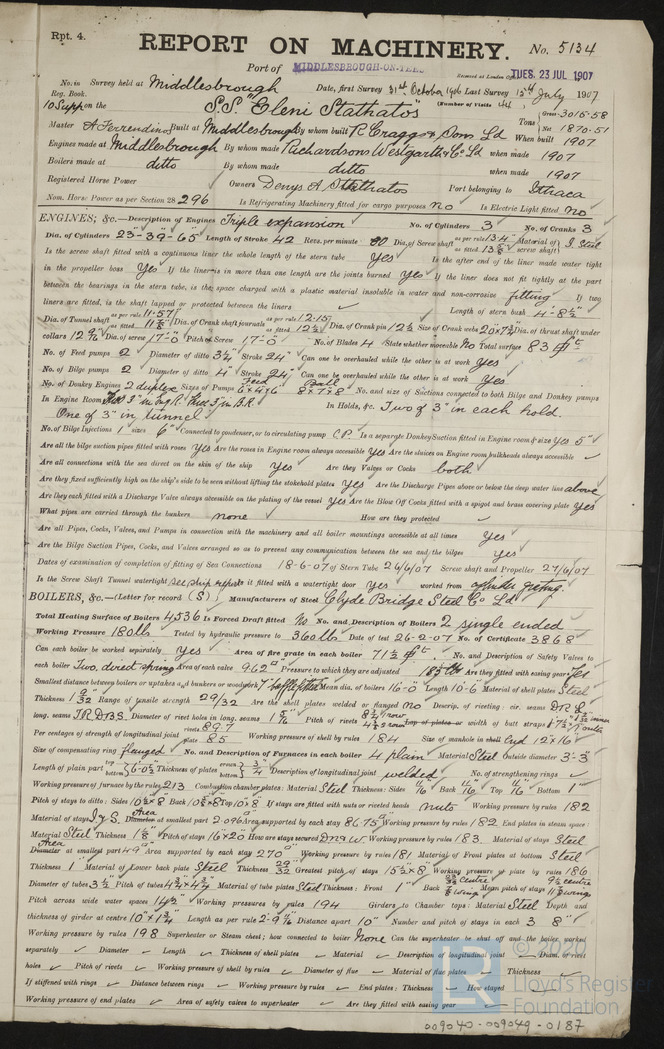 Rpt. 4.
REPORT ON MACHINERY. No. 5134
Port of MIDDLESBROUGH-ON-TEES Received at London TUES. 23 JUL 1907
No. in Survey held at Middlesbrough Date, first Survey 31st October 1906 Last Survey 15th July 1907
Reg. Book. (Number of Visits 44)
10 Supp on the S.S. "Eleni Stathatos" Tons Gross 3015.58 Net 1870.51
Master A Ferrendinos Built at Middlesbrough By whom built R. Craggs & Sons Ld When built 1907
Engines made at Middlesbrough By whom made Richardsons Westgarth & Co Ld when made 1907
Boilers made at ditto By whom made ditto when made 1907
Registered Horse Power Owners Denys A Stathatos Port belonging to Ithaca
Nom. Horse Power as per Section 28 296 Is Refrigerating Machinery fitted for cargo purposes No Is Electric Light fitted No
ENGINES, &c.—Description of Engines Triple expansion No. of Cylinders 3 No. of Cranks 3
Dia. of Cylinders 23"-39"-65" Length of Stroke 42 Revs. per minute Dia. of Screw shaft as per rule 13.4 as fitted Material of screw shaft I. Steel
Is the screw shaft fitted with a continuous liner the whole length of the stern tube Yes Is the after end of the liner made water tight
in the propeller boss Yes If the liner is in more than one length are the joints burned Yes If the liner does not fit tightly at the part
between the bearings in the stern tube, is the space charged with a plastic material insoluble in water and non-corrosive fitting If two
liners are fitted, is the shaft lapped or protected between the liners ✓ Length of stern bush 4'-8½"
Dia. of Tunnel shaft as per rule 11.57 as fitted Dia. of Crank shaft journals as per rule 12.15 as fitted 12½ Dia. of Crank pin 12½ Size of Crank webs Dia. of thrust shaft under
collars Dia. of screw 17'-0" Pitch of Screw 17'-0" No. of Blades 4 State whether moveable No Total surface 83
No. of Feed pumps 2 Diameter of ditto 3½ Stroke 24" Can one be overhauled while the other is at work Yes
No. of Bilge pumps 2 Diameter of ditto 4" Stroke 24" Can one be overhauled while the other is at work Yes
No. of Donkey Engines 2 duplex Sizes of Pumps Feed 6"x4"x6" Ball 8"x7"x8" No. and size of Suctions connected to both Bilge and Donkey pumps
In Engine Room In Holds, &c. Two of 3" in each hold.
One of 3" in tunnel
No. of Bilge Injections 1 sizes 6" Connected to condenser, or to circulating pump C.P. Is a separate Donkey Suction fitted in Engine room & size Yes 5"
Are all the bilge suction pipes fitted with roses Yes Are the roses in Engine room always accessible Yes Are the sluices on Engine room bulkheads always accessible ✓
Are all connections with the sea direct on the skin of the ship Yes Are they Valves or Cocks both
Are they fixed sufficiently high on the ship's side to be seen without lifting the stokehold plates Yes Are the Discharge Pipes above or below the deep water line above
Are they each fitted with a Discharge Valve always accessible on the plating of the vessel Yes Are the Blow Off Cocks fitted with a spigot and brass covering plate Yes
What pipes are carried through the bunkers none How are they protected ✓
Are all Pipes, Cocks, Valves, and Pumps in connection with the machinery and all boiler mountings accessible at all times Yes
Are the Bilge Suction Pipes, Cocks, and Valves arranged so as to prevent any communication between the sea and the bilges Yes
Dates of examination of completion of fitting of Sea Connections 18-6-07 of Stern Tube 26/6/07 Screw shaft and Propeller 27/6/07
Is the Screw Shaft Tunnel watertight See ship report Is it fitted with a watertight door Yes worked from cylinder grating.
BOILERS, &c.—(Letter for record (S)) Manufacturers of Steel Clyde Bridge Steel Co Ld
Total Heating Surface of Boilers 4536 Is Forced Draft fitted No No. and Description of Boilers 2 single ended
Working Pressure 180 lbs Tested by hydraulic pressure to 360 lbs Date of test 26-2-07 No. of Certificate 3868
Can each boiler be worked separately Yes Area of fire grate in each boiler 71½ No. and Description of Safety Valves to
each boiler Two, direct spring Area of each valve 9.62 Pressure to which they are adjusted 185 lbs Are they fitted with easing gear Yes
Smallest distance between boilers or uptakes and bunkers or woodwork 7" Mean dia. of boilers 16'-0" Length 10'-6" Material of shell plates Steel
Thickness 1 9/32 Range of tensile strength 29/32 Are the shell plates welded or flanged no Descrip. of riveting: cir. seams D.R.L.
long. seams T.R.D.B.S. Diameter of rivet holes in long. seams Pitch of rivets width of butt straps
Per centages of strength of longitudinal joint rivets 89.7 plate 85 Working pressure of shell by rules 184 Size of manhole in shell End 12"x16"
Size of compensating ring flanged No. and Description of Furnaces in each boiler 4 plain Material Steel Outside diameter 3'-3"
Length of plain part top bottom 6'-0½" Thickness of plates crown bottom ¾" Description of longitudinal joint welded No. of strengthening rings ✓
Working pressure of furnace by the rules 213 Combustion chamber plates: Material Steel Thickness: Sides Back Top Bottom 1"
Pitch of stays to ditto: Sides Back Top If stays are fitted with nuts or riveted heads nuts Working pressure by rules 182
Material of stays I & S. Area Diameter at smallest part 2.096 Area supported by each stay 86.75 Working pressure by rules 182 End plates in steam space:
Material Steel Thickness 1⅛" Pitch of stays 16"x20" How are stays secured DN&W. Working pressure by rules 183 Material of stays Steel
Area Diameter at smallest part Area supported by each stay 270 Working pressure by rules 181 Material of Front plates at bottom Steel
Thickness 1" Material of Lower back plate Steel Thickness 29/32 Greatest pitch of stays 15½x8" Working pressure of plate by rules 186
Diameter of tubes 3½ Pitch of tubes Material of tube plates Steel Thickness: Front 1" Back Mean pitch of stays
Pitch across wide water spaces 14½" Working pressures by rules 194 Girders to Chamber tops: Material Steel Depth and
thickness of girder at centre Length as per rule Distance apart 10" Number and pitch of stays in each 3 8"
Working pressure by rules 198 Superheater or Steam chest; how connected to boiler None Can the superheater be shut off and the boiler worked
separately ✓ Diameter ✓ Length ✓ Thickness of shell plates ✓ Material ✓ Description of longitudinal joint ✓ Diam. of rivet
holes ✓ Pitch of rivets ✓ Working pressure of shell by rules ✓ Diameter of flue ✓ Material of flue plates ✓ Thickness ✓
If stiffened with rings ✓ Distance between rings ✓ Working pressure by rules ✓ End plates: Thickness ✓ How stayed ✓
Working pressure of end plates ✓ Area of safety valves to superheater ✓ Are they fitted with easing gear ✓
© 2020
Lloyd's Register
Foundation
009040-009049-0187